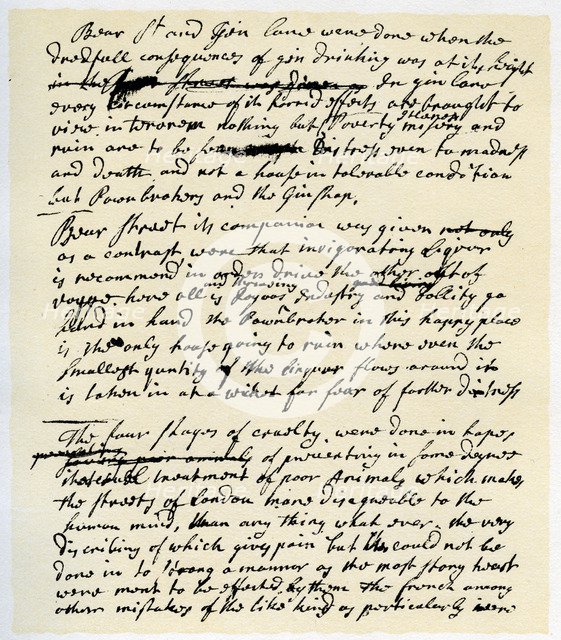 Bear St and Gin Lane were done when the
dredfull consequences of gin drinking was at its hight
in the In gin lane
every circumstance of its horrid effects are brought to
view in terorem nothing but Poverty misery and
ruin are to be seen Distress even to madness
and death and not a house in tolerable condition
but Pawnbrokers and the Ginshop.
Bear Street its companion was given not only
as a contrast were that invigorating liquor
is recommend in order drive the other out of
and thriveing
vogue. here all is Joyous Industry and Jollity go
hand in hand the Pawnbroker in this happy place
is the only house going to ruin where even the
smallest quntity of the linquor flows around it
is taken in at a wicket for fear of farther distress
The four stages of cruelty were done in hopes
of preventing in some degree
that cruel treatment of poor Animals which makes
the streets of London more disagreable to the
human mind, than any thing what ever. the very
discribing of which gives pain but could not be
done in to strong a manner as the most stony heart
were ment to be effected by them the french among
other mistakes of the like kind as particularly were